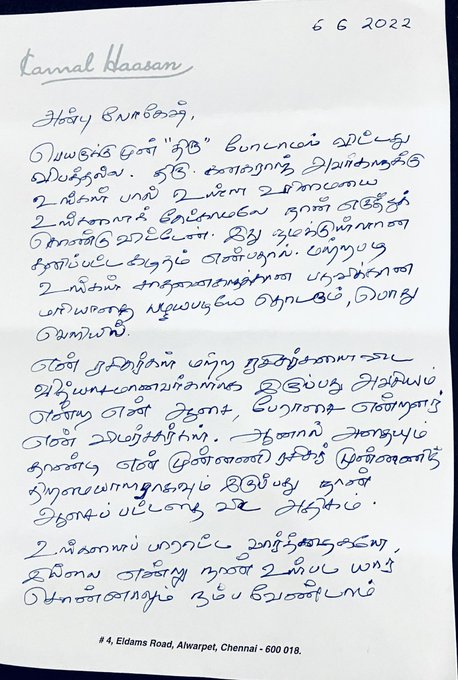 6 6 2022
Kamal Haasan
அன்பு லோகேஷ்,
பெயருக்கு முன் "திரு" போடாமல் விட்டது
விபத்தல்ல. திரு. கனகராஜ் அவர்களுக்கு
உங்கள் பால் உள்ள உரிமையை
உங்களைக் கேட்காமலே நான் எடுத்துக்
கொண்டு விட்டேன். இது நமக்குள்ளான
தனிப்பட்ட கடிதம் என்பதால். மற்றபடி
உங்கள் சாதனைகளுக்கான பதவிக்கான
மரியாதை பழையபடியே தொடரும், பொது
வெளியில்.
என் ரசிகர்கள் மற்ற ரசிகர்களை விட
வித்யாசமானவர்களாக இருப்பது அவசியம்
என்ற என் ஆசை, பேராசை என்றனர்
என் விமர்சகர்கள். ஆனால் அதையும்
தாண்டி என் முன்னணி ரசிகர் முன்னணித்
திறமையாளராகவும் இருப்பது நான்
ஆசைப் பட்டதை விட அதிகம்.
உங்களைப் பாராட்ட வார்த்தைகளே
இல்லை என்று நான் உள்பட யார்
சொன்னாலும் நம்ப வேண்டாம்
# 4, Eldams Road, Alwarpet, Chennai - 600 018.